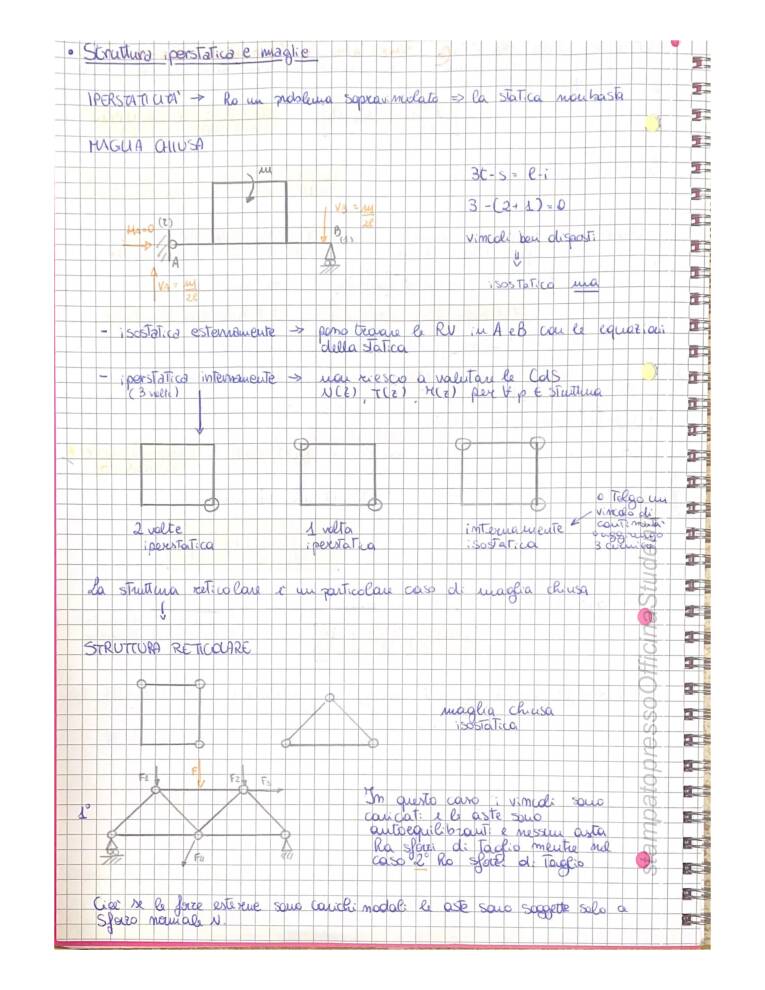 • Struttura iperstatica e maglie
IPERSTATICITA' → Ho un problema sopravincolato ⇒ la statica non basta
MAGLIA CHIUSA
M
3t - s = l - i
3 - (2+1) = 0
vincoli ben disposti
⇓
isostatico ma
HA=0
(2)
A
VA = M/2l
VB = M/2l
B
(1)
- isostatica esternamente → posso trovare le RV in A e B con le equazioni
della statica
- iperstatica internamente → non riesco a valutare le CdS
(3 volte)
N(z), T(z), M(z) per ∀ p ∈ struttura
2 volte
iperstatica
1 volta
iperstatica
internamente
isostatica
o Tolgo un
vincolo di
continuità
o aggiungo
3 cerniere
La struttura reticolare è un particolare caso di maglia chiusa
↓
STRUTTURA RETICOLARE
maglia chiusa
isostatica
1°
F1
F
F2
F3
F4
In questo caso i vincoli sono
caricati e le aste sono
autoequilibranti e nessun asta
ha sforzi di Taglio mentre nel
caso 2° ho sforzi di Taglio
Cioè se le forze esterne sono carichi nodali le aste sono soggette solo a
sforzo normale N.
stampatopressoOfficinaStudenti